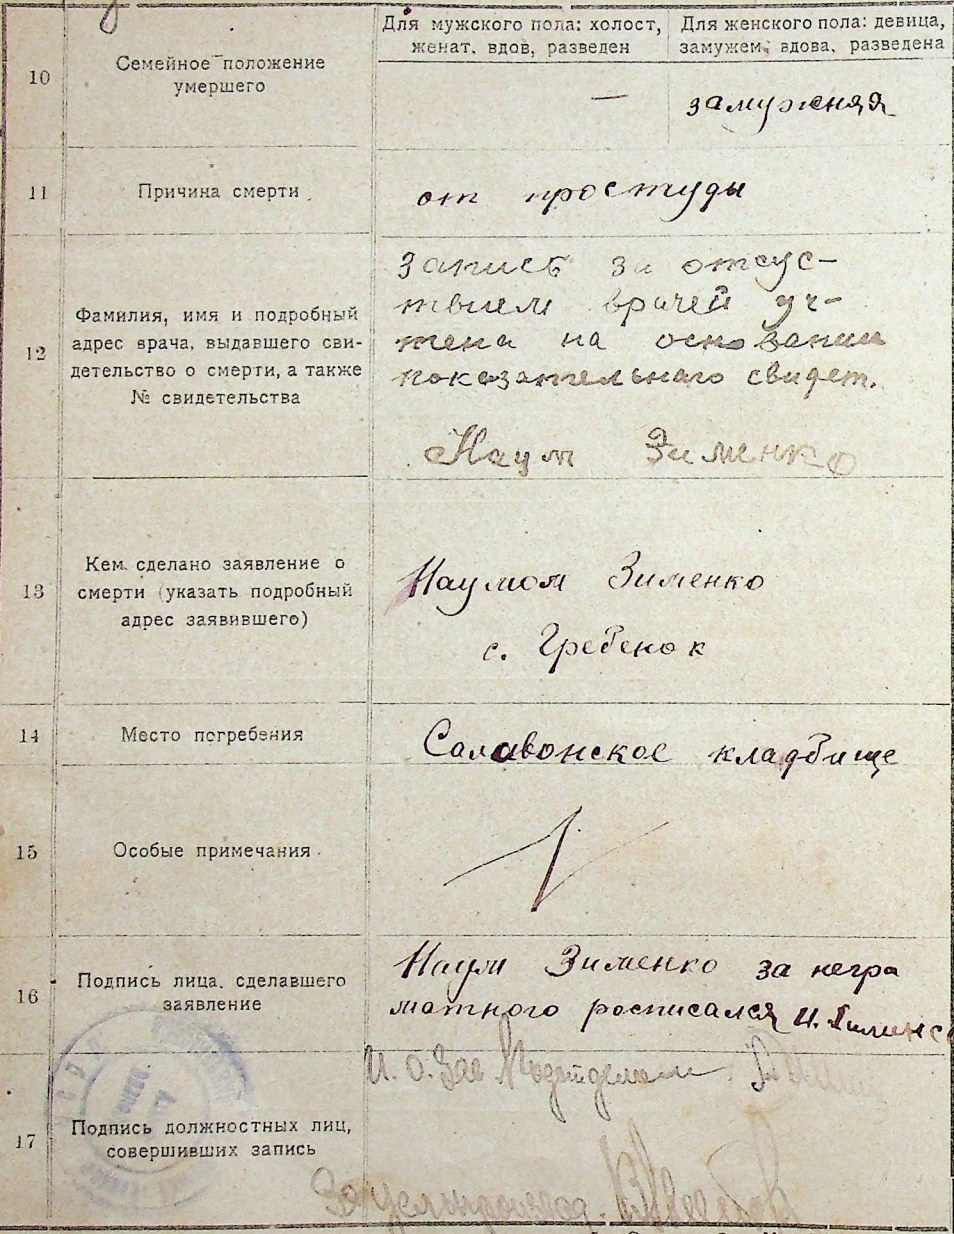 Для мужского пола: холост,
женат, вдов, разведен
Для женского пола: девица,
замужем, вдова, разведена
10
Семейное положение
умершего
—
замужняя
11
Причина смерти
от простуды
12
Фамилия, имя и подробный
адрес врача, выдавшего сви-
детельство о смерти, а также
№ свидетельства
Запись за отсус-
твием врачей уч-
тена на основании
показательнаго свидет.
Наум Зименко
13
Кем сделано заявление о
смерти (указать подробный
адрес заявившего)
Наумом Зименко
с. Гребенок
14
Место погребения
Салавонское кладбище
15
Особые примечания
16
Подпись лица, сделавшего
заявление
Наум Зименко за негра
мотного росписался
17
Подпись должностных лиц,
совершивших запись
И. о. Зав Подотделом